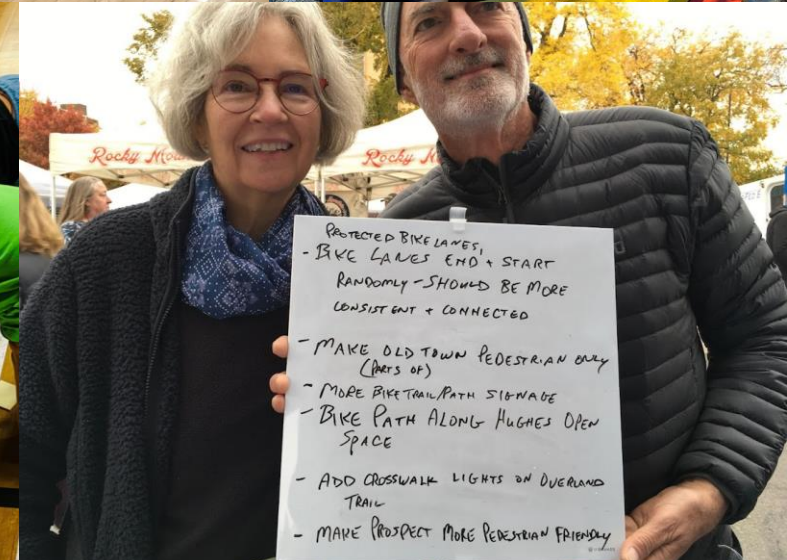 Rocky Mou
Rocky M
PROTECTED BIKE LANES,
- BIKE LANES END + START
RANDOMLY - SHOULD BE MORE
CONSISTENT + CONNECTED
- MAKE OLD TOWN PEDESTRIAN ONLY
(PARTS OF)
- MORE BIKE TRAIL/PATH SIGNAGE
- BIKE PATH ALONG HUGHES OPEN
SPACE
- ADD CROSSWALK LIGHTS ON OVERLAND
TRAIL
- MAKE PROSPECT MORE PEDESTRIAN FRIENDLY